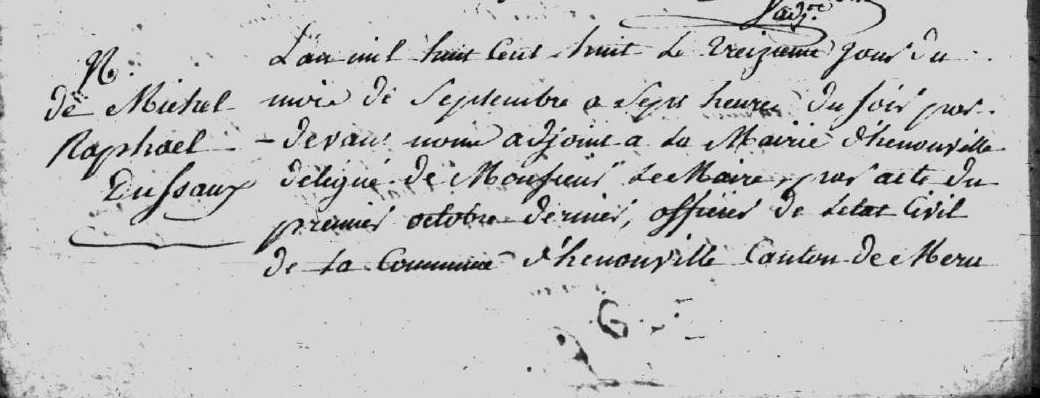 adj.
N.
de Michel
Raphael
Dussaux
L'an mil huit Cent huit Le treizieme jour du
mois de Septembre a Sept heures du soir par-
devant nous adjoint a La Mairie d'henonville
délégué de Monsieur Le Maire, par acte du
premier octobre dernier, officier de Letat Civil
de La Commune d'henonville Canton de Meru